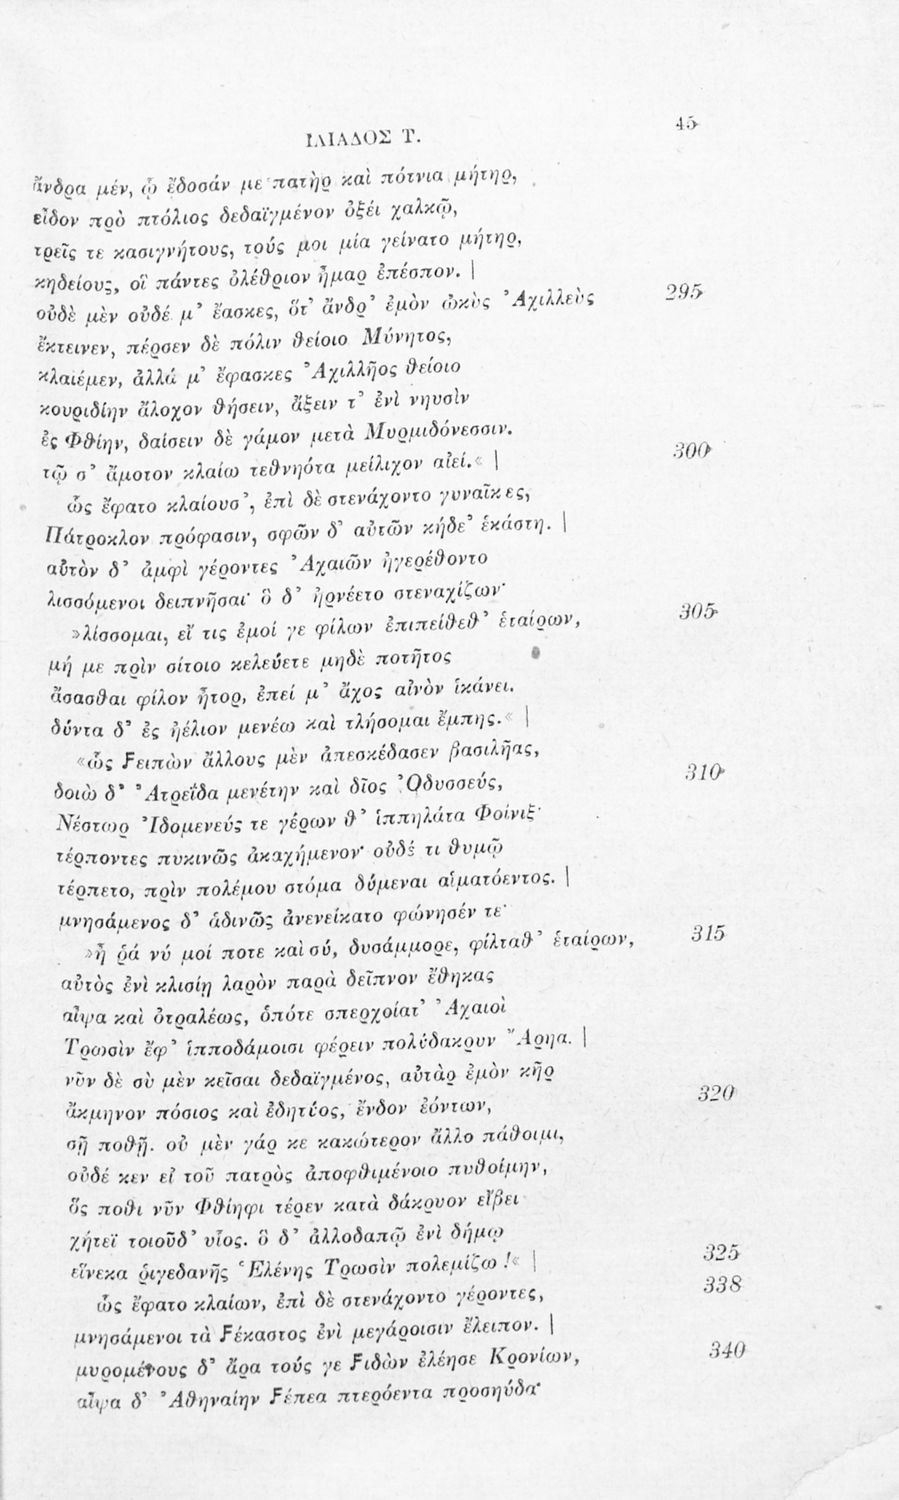 ΙΛΙΑΔΟΣ Τ. 45
ἄνδρα μέν, ᾧ ἔδοσάν με πατὴρ καὶ πότνια μήτηρ,
εἶδον πρὸ πτόλιος δεδαϊγμένον ὀξέι χαλκῷ,
τρεῖς τε κασιγνήτους, τούς μοι μία γείνατο μήτηρ,
κηδείους, οἳ πάντες ὀλέθριον ἦμαρ ἐπέσπον. |
οὐδὲ μὲν οὐδέ μ’ ἔασκες, ὅτ’ ἄνδρ’ ἐμὸν ὠκὺς Ἀχιλλεὺς 295
ἔκτεινεν, πέρσεν δὲ πόλιν θείοιο Μύνητος,
κλαιέμεν, ἀλλά μ’ ἔφασκες Ἀχιλλῆος θείοιο
κουριδίην ἄλοχον θήσειν, ἄξειν τ’ ἐνὶ νηυσὶν
ἐς Φθίην, δαίσειν δὲ γάμον μετὰ Μυρμιδόνεσσιν.
τῷ σ’ ἄμοτον κλαίω τεθνηότα μείλιχον αἰεί.« | 300
ὣς ἔφατο κλαίουσ’, ἐπὶ δὲ στενάχοντο γυναῖκες,
Πάτροκλον πρόφασιν, σφῶν δ’ αὐτῶν κήδε’ ἑκάστη. |
αὐτὸν δ’ ἀμφὶ γέροντες Ἀχαιῶν ἠγερέθοντο
λισσόμενοι δειπνῆσαι· ὃ δ’ ἠρνέετο στεναχίζων·
»λίσσομαι, εἴ τις ἐμοί γε φίλων ἐπιπείθεθ’ ἑταίρων, 305
μή με πρὶν σίτοιο κελεύετε μηδὲ ποτῆτος
ἄσασθαι φίλον ἦτορ, ἐπεί μ’ ἄχος αἰνὸν ἱκάνει.
δύντα δ’ ἐς ἠέλιον μενέω καὶ τλήσομαι ἔμπης.« |
«ὣς Ϝειπὼν ἄλλους μὲν ἀπεσκέδασεν βασιλῆας,
δοιὼ δ’ Ἀτρεΐδα μενέτην καὶ δῖος Ὀδυσσεύς, 310
Νέστωρ Ἰδομενεύς τε γέρων θ’ ἱππηλάτα Φοίνιξ·
τέρποντες πυκινῶς ἀκαχήμενον· οὐδέ τι θυμῷ
τέρπετο, πρὶν πολέμου στόμα δύμεναι αἱματόεντος. |
μνησάμενος δ’ ἁδινῶς ἀνενείκατο φώνησέν τε·
»ἦ ῥά νύ μοί ποτε καὶ σύ, δυσάμμορε, φίλταθ’ ἑταίρων, 315
αὐτὸς ἐνὶ κλισίῃ λαρὸν παρὰ δεῖπνον ἔθηκας
αἶψα καὶ ὀτραλέως, ὁπότε σπερχοίατ’ Ἀχαιοὶ
Τρωσὶν ἔφ’ ἱπποδάμοισι φέρειν πολύδακρυν Ἄρηα. |
νῦν δὲ σὺ μὲν κεῖσαι δεδαϊγμένος, αὐτὰρ ἐμὸν κῆρ
ἄκμηνον πόσιος καὶ ἐδητύος, ἔνδον ἐόντων, 320
σῇ ποθῇ. οὐ μὲν γάρ κε κακώτερον ἄλλο πάθοιμι,
οὐδέ κεν εἰ τοῦ πατρὸς ἀποφθιμένοιο πυθοίμην,
ὅς ποθι νῦν Φθίηφι τέρεν κατὰ δάκρυον εἴβει
χήτεϊ τοιοῦδ’ υἷος. ὃ δ’ ἀλλοδαπῷ ἐνὶ δήμῳ
εἵνεκα ῥιγεδανῆς Ἑλένης Τρωσὶν πολεμίζω!« | 325
ὣς ἔφατο κλαίων, ἐπὶ δὲ στενάχοντο γέροντες, 338
μνησάμενοι τὰ Ϝέκαστος ἐνὶ μεγάροισιν ἔλειπον. |
μυρομένους δ’ ἄρα τούς γε Ϝιδὼν ἐλέησε Κρονίων, 340
αἶψα δ’ Ἀθηναίην Ϝέπεα πτερόεντα προσηύδα·